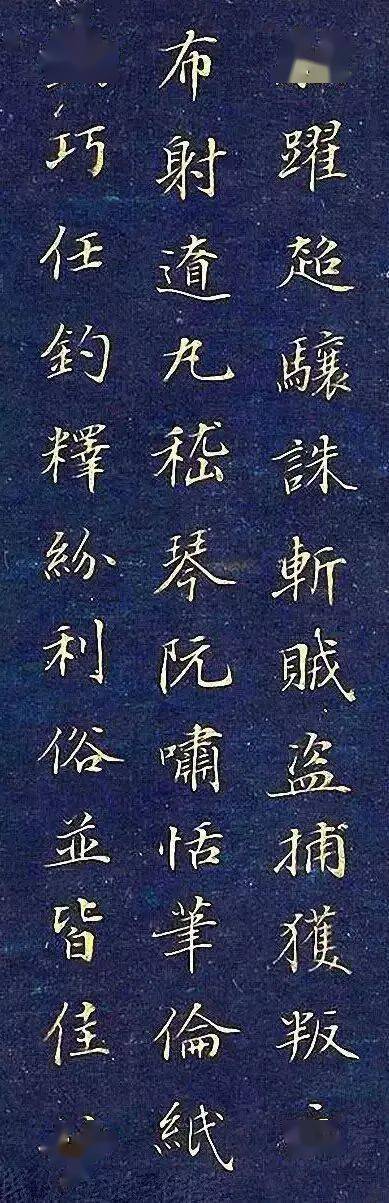 躍超驤誅斬賊盜捕獲叛
布射遼丸嵇琴阮嘯恬筆倫紙
巧任釣釋紛利俗並皆佳